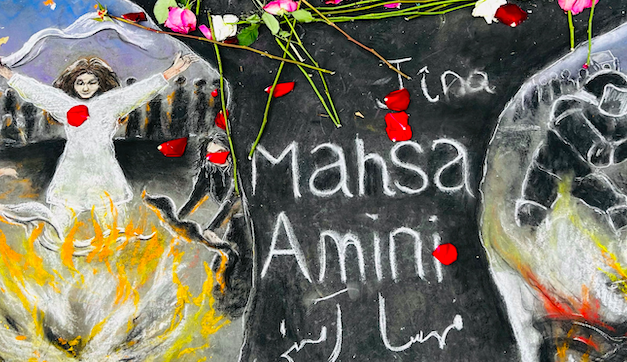 Jîna
Mahsa
Amini
مهسا آمینی